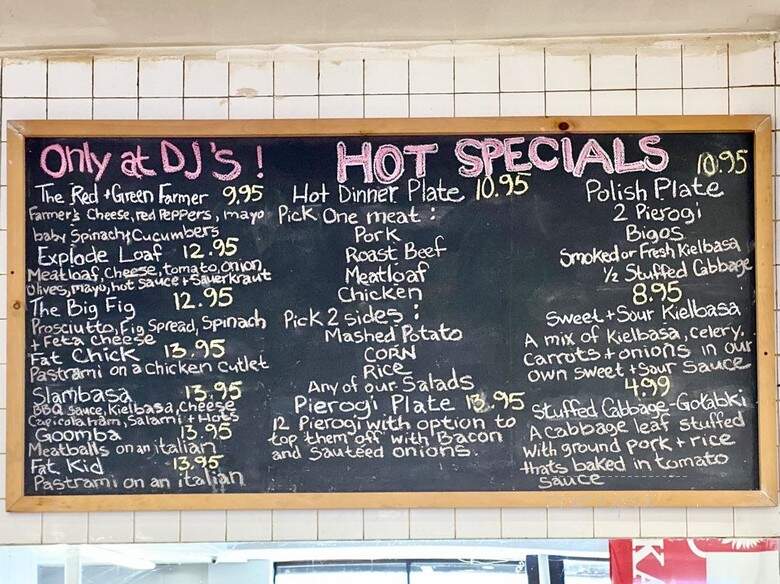 Only at DJ's!
The Red + Green Farmer 9,95
Farmer's Cheese, red Peppers, mayo
baby Spinach, Cucumbers
Explode Loaf 12.95
Meatloaf, Cheese, tomato, onion,
Olives, mayo, hot sauce + Sauerkraut
The Big Fig 12.95
Prosciutto, Fig Spread, Spinach
+ Feta Cheese
Fat Chick 13.95
Pastrami on a chicken cutlet
Slambasa 13.95
BBQ sauce, Kielbasa, Cheese
Capicola, ham, Salami + Hots
Goomba 13.95
Meatballs on an italian
Fat Kid 13.95
Pastrami on an italian
HOT SPECIALS
Hot Dinner Plate 10.95
Pick One meat:
Pork
Roast Beef
Meatloaf
Chicken
Pick 2 sides:
Mashed Potato
CORN
Rice
Any of our Salads
Pierogi Plate 13.95
12 Pierogi with option to
top "them" off with Bacon
and Sautéed onions.
10.95
Polish Plate
2 Pierogi
Bigos
Smoked or Fresh Kielbasa
1/2 Stuffed Cabbage
8.95
Sweet + Sour Kielbasa
A mix of Kielbasa, Celery,
Carrots + onions in our
own sweet + sour sauce
4.99
Stuffed Cabbage-Gołabki
A cabbage leaf stuffed
with ground pork + rice
thats baked in tomato
sauce
KA